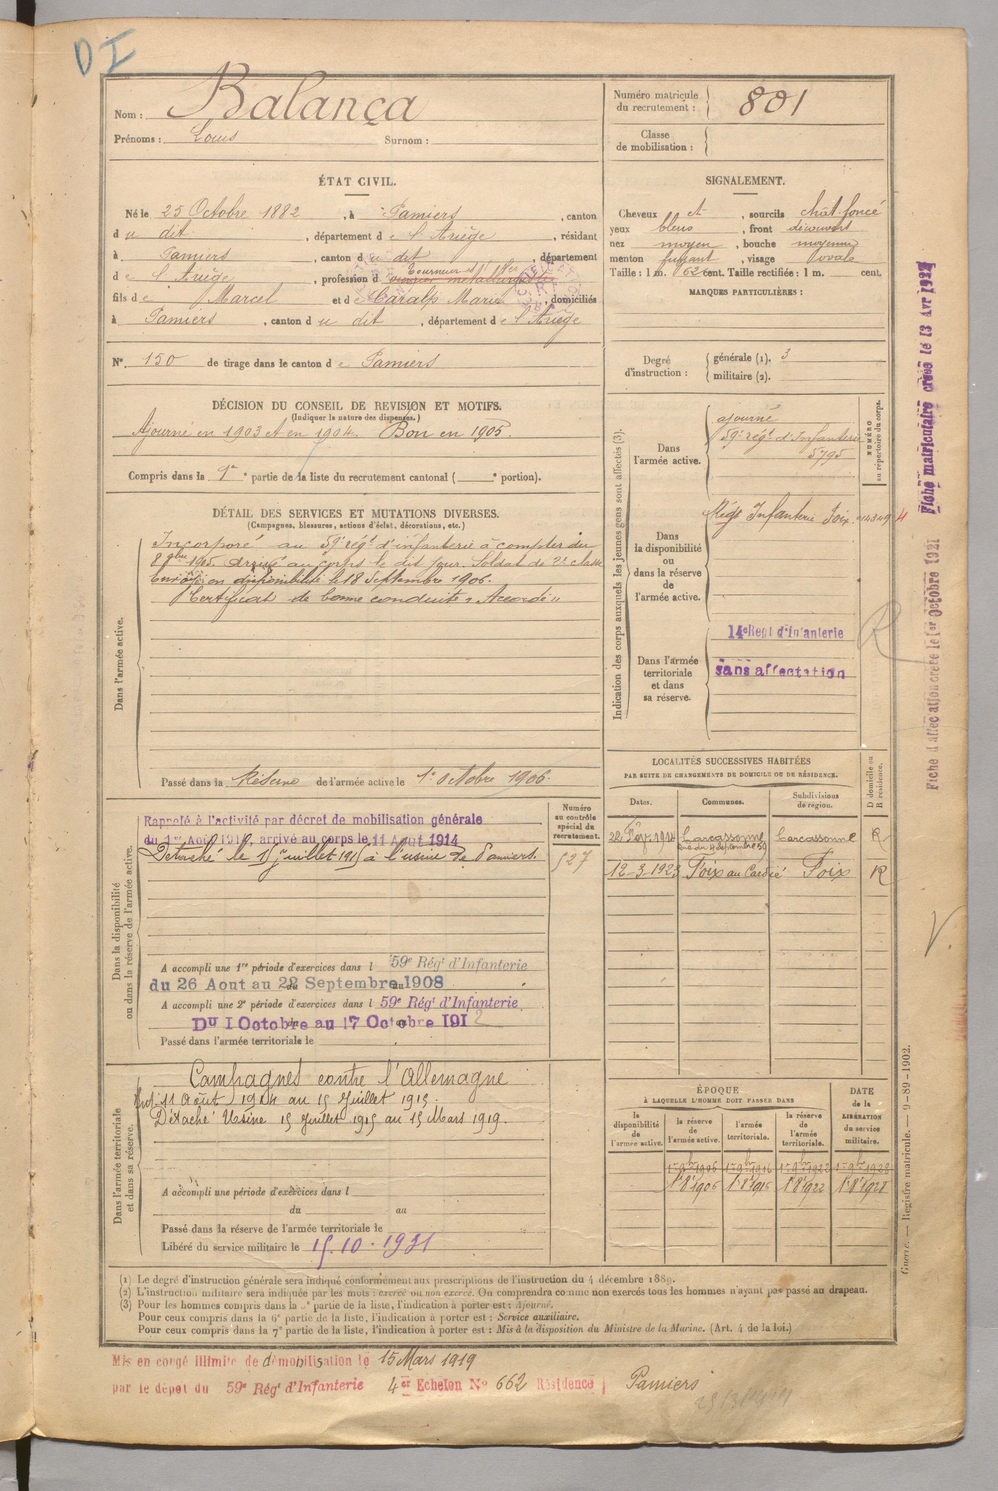 DI
Nom : Balança
Prénoms : Louis Surnom :
Numéro matricule du recrutement : 801
Classe de mobilisation :
ÉTAT CIVIL.
Né le 25 Octobre 1882, à Pamiers, canton
du dit, département de l'Ariège, résidant
à Pamiers, canton de dit, département
de l'Ariège, profession d
fils de Marcel et de Caralp Marie, domiciliés
à Pamiers, canton du dit, département de l'Ariège
N° 150 de tirage dans le canton de Pamiers
SIGNALEMENT.
Cheveux et, sourcils chât foncé
yeux bleus, front découvert
nez moyen, bouche moyenne
menton fuyant, visage ovale
Taille : 1 m. 62 cent. Taille rectifiée : 1 m. cent.
MARQUES PARTICULIÈRES :
Degré d'instruction : générale (1). 3
militaire (2).
DÉCISION DU CONSEIL DE REVISION ET MOTIFS.
(Indiquer la nature des dispenses.)
Ajourné en 1903 et en 1904. Bon en 1905.
Compris dans la 1re partie de la liste du recrutement cantonal ( portion).
DÉTAIL DES SERVICES ET MUTATIONS DIVERSES.
(Campagnes, blessures, actions d'éclat, décorations, etc.)
Dans l'armée active.
Incorporé au 59e régt d'infanterie à compter du
8 8bre 1905. arrivé au corps le dit jour. Soldat de 2e classe
Envoyé en disponibilité le 18 Septembre 1906.
Certificat de bonne conduite "Accordé"
Passé dans la Réserve de l'armée active le 1er Octobre 1906.
Indication des corps auxquels les jeunes gens sont affectés (3).
NUMÉRO au répertoire du corps.
Dans l'armée active.
ajourné
59e régt d'Infanterie
5795
Dans la disponibilité ou dans la réserve de l'armée active.
Régt Infanterie Foix
Dans l'armée territoriale et dans sa réserve.
14e Regt d'Infanterie
sans affectation
R
Fiche matriculaire créée le 13 Avr 1921
Fiche d'affectation créée le 1er Octobre 1921
LOCALITÉS SUCCESSIVES HABITÉES
PAR SUITE DE CHANGEMENTS DE DOMICILE OU DE RÉSIDENCE.
Dates. Communes. Subdivisions de région. D domicile ou R résidence.
Carcassonne Carcassonne R
12-3-1923 Foix Foix R
Dans la disponibilité ou dans la réserve de l'armée active.
Numéro au contrôle spécial du recrutement.
527
Rappelé à l'activité par décret de mobilisation générale
du 1er Août 1914, arrivé au corps le 11 Août 1914
Détaché le 15 juillet 1915 à l'usine de Pamiers.
A accompli une 1re période d'exercices dans l 59e Régt d'Infanterie
du 26 Aout au 22 Septembre 1908
A accompli une 2e période d'exercices dans l 59e Régt d'Infanterie
Du 1 Octobre au 17 Octobre 1912
Passé dans l'armée territoriale le
Dans l'armée territoriale et dans sa réserve.
Campagnes contre l'Allemagne
11 Août 1914 au 15 Juillet 1915.
Détaché Usine 15 Juillet 1915 au 15 Mars 1919.
A accompli une période d'exercices dans l
du au
Passé dans la réserve de l'armée territoriale le
Libéré du service militaire le 15.10.1931
ÉPOQUE
À LAQUELLE L'HOMME DOIT PASSER DANS
la disponibilité de l'armée active. la réserve de l'armée active. l'armée territoriale. la réserve de l'armée territoriale. DATE de la LIBÉRATION du service militaire.
1er 9bre 1906 1er 9bre 1916 1er 9bre 1922 1er 9bre 1928
1er 8 1906 1er 8 1916 1er 8 1922 1er 8 1928
Guerre. — Registre matricule. — 9-89-1902.
(1) Le degré d'instruction générale sera indiqué conformément aux prescriptions de l'instruction du 4 décembre 1889.
(2) L'instruction militaire sera indiquée par les mots : exercé ou non exercé. On comprendra comme non exercés tous les hommes n'ayant pas passé au drapeau.
(3) Pour les hommes compris dans la 5e partie de la liste, l'indication à porter est : Ajourné.
Pour ceux compris dans la 6e partie de la liste, l'indication à porter est : Service auxiliaire.
Pour ceux compris dans la 7e partie de la liste, l'indication à porter est : Mis à la disposition du Ministre de la Marine. (Art. 4 de la loi.)
Mis en congé illimité de démobilisation le 15 Mars 1919
par le dépôt du 59e Régt d'Infanterie 4er Echelon No 662 Résidence Pamiers